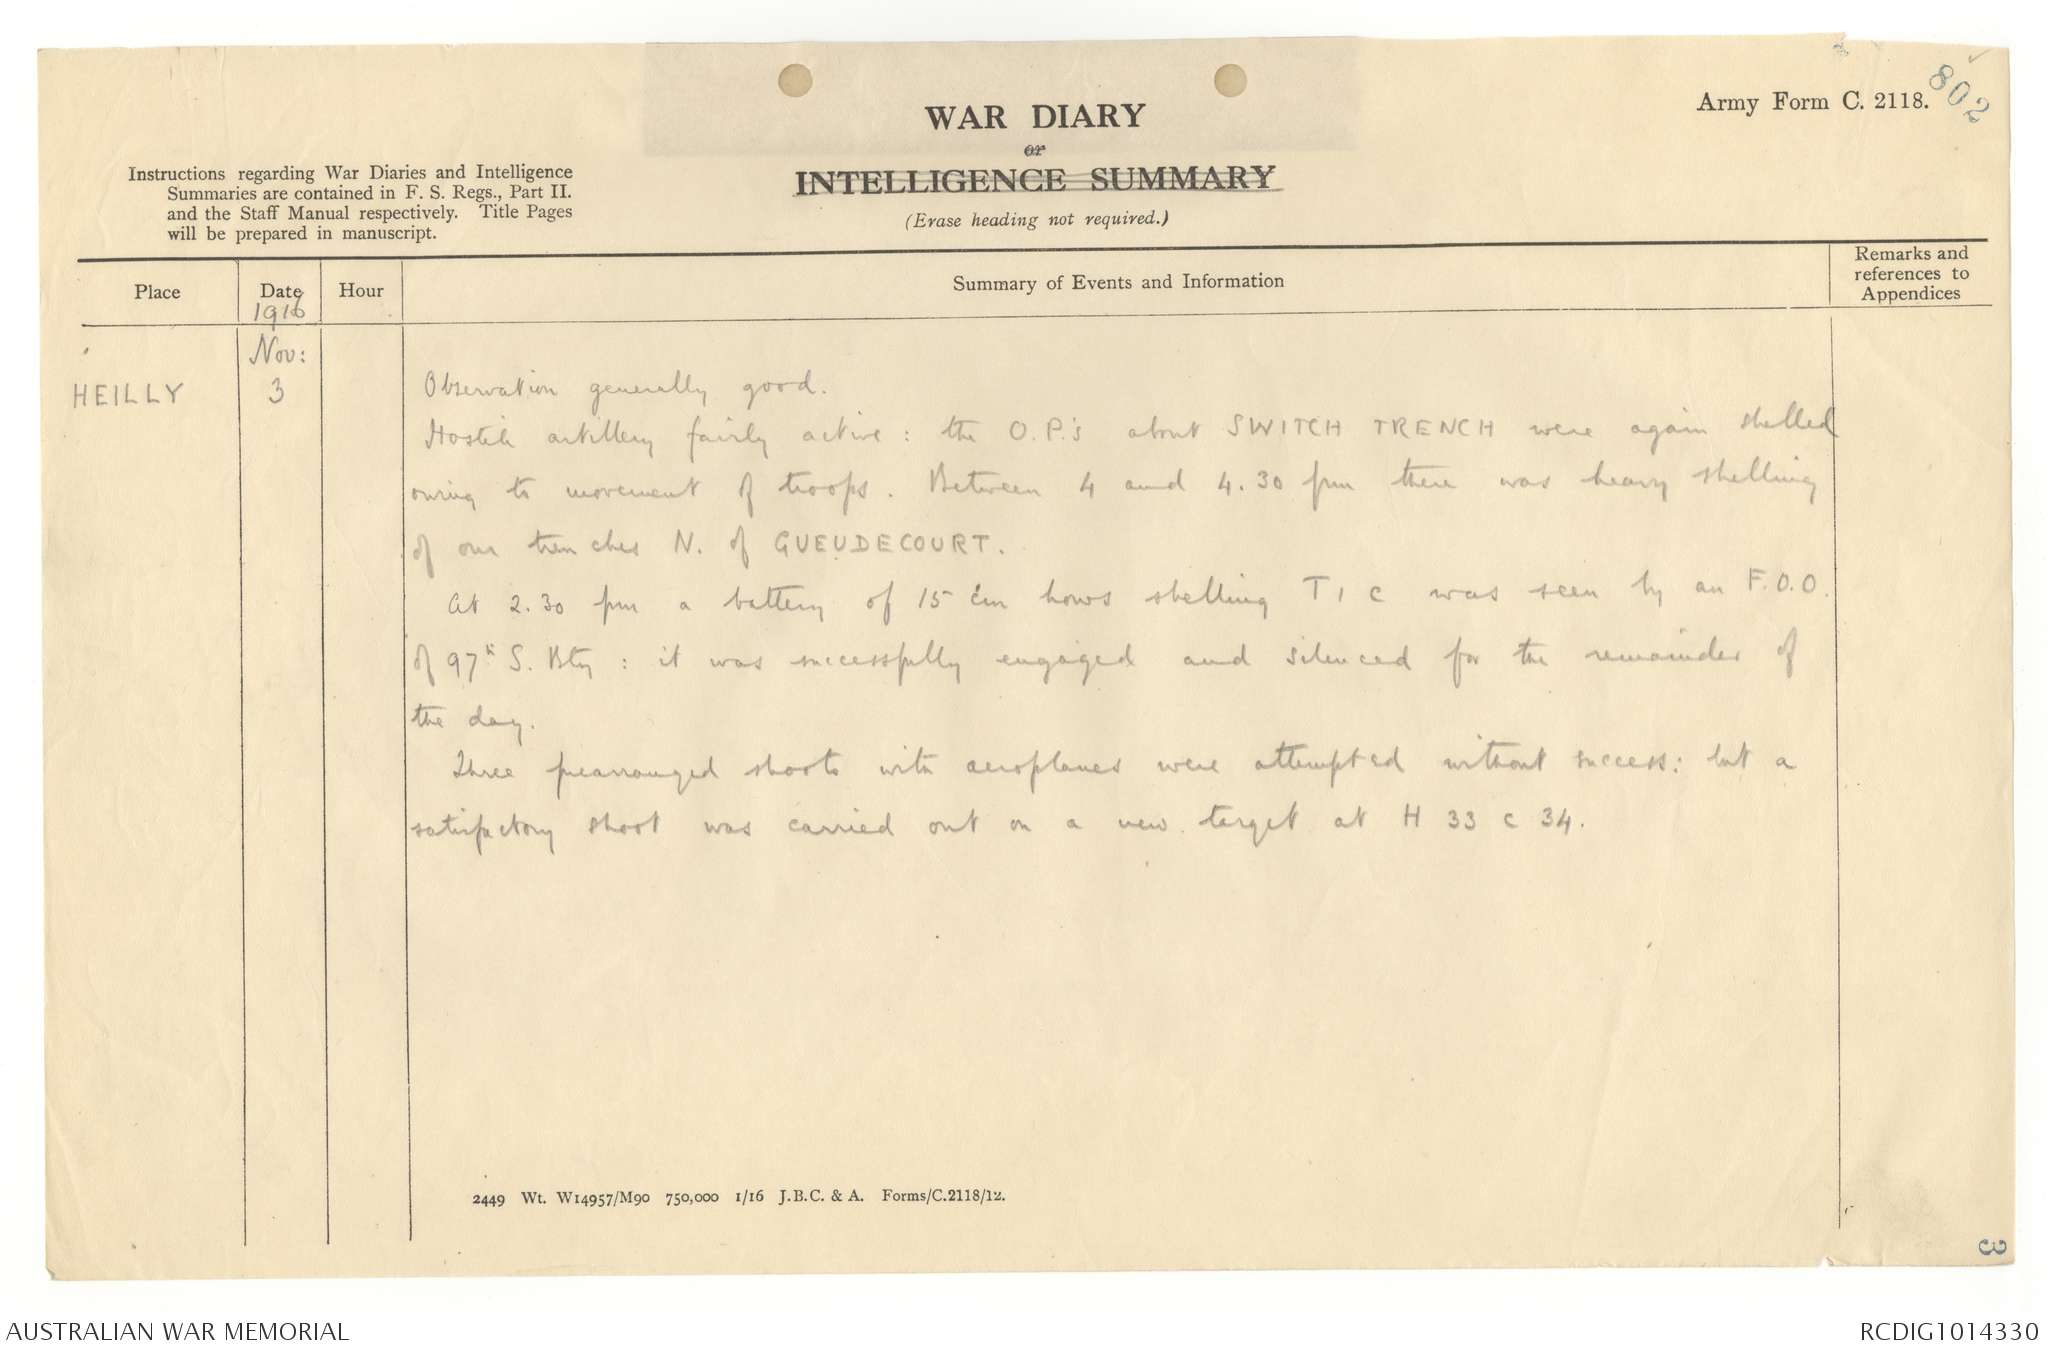 802
Army Form C. 2118.
WAR DIARY
or
INTELLIGENCE SUMMARY
(Erase heading not required.)
Instructions regarding War Diaries and Intelligence
Summaries are contained in F. S. Regs., Part II.
and the Staff Manual respectively. Title Pages
will be prepared in manuscript.
Place Date Hour Summary of Events and Information Remarks and references to Appendices
1916
Nov:
HEILLY 3 Observation generally good.
Hostile artillery fairly active : the O.P.'s about SWITCH TRENCH were again shelled
owing to movement of troops. Between 4 and 4.30 pm there was heavy shelling
of our trenches N. of GUEUDECOURT.
At 2.30 pm a battery of 15 cm hows shelling T 1 c was seen by an F.O.O.
of 97th S. Bty : it was successfully engaged and silenced for the remainder of
the day.
Three prearranged shoots with aeroplanes were attempted without success: but a
satisfactory shoot was carried out on a new target at H 33 c 34.
2449 Wt. W14957/M90 750,000 1/16 J.B.C. & A. Forms/C.2118/12.
3
AUSTRALIAN WAR MEMORIAL
RCDIG1014330